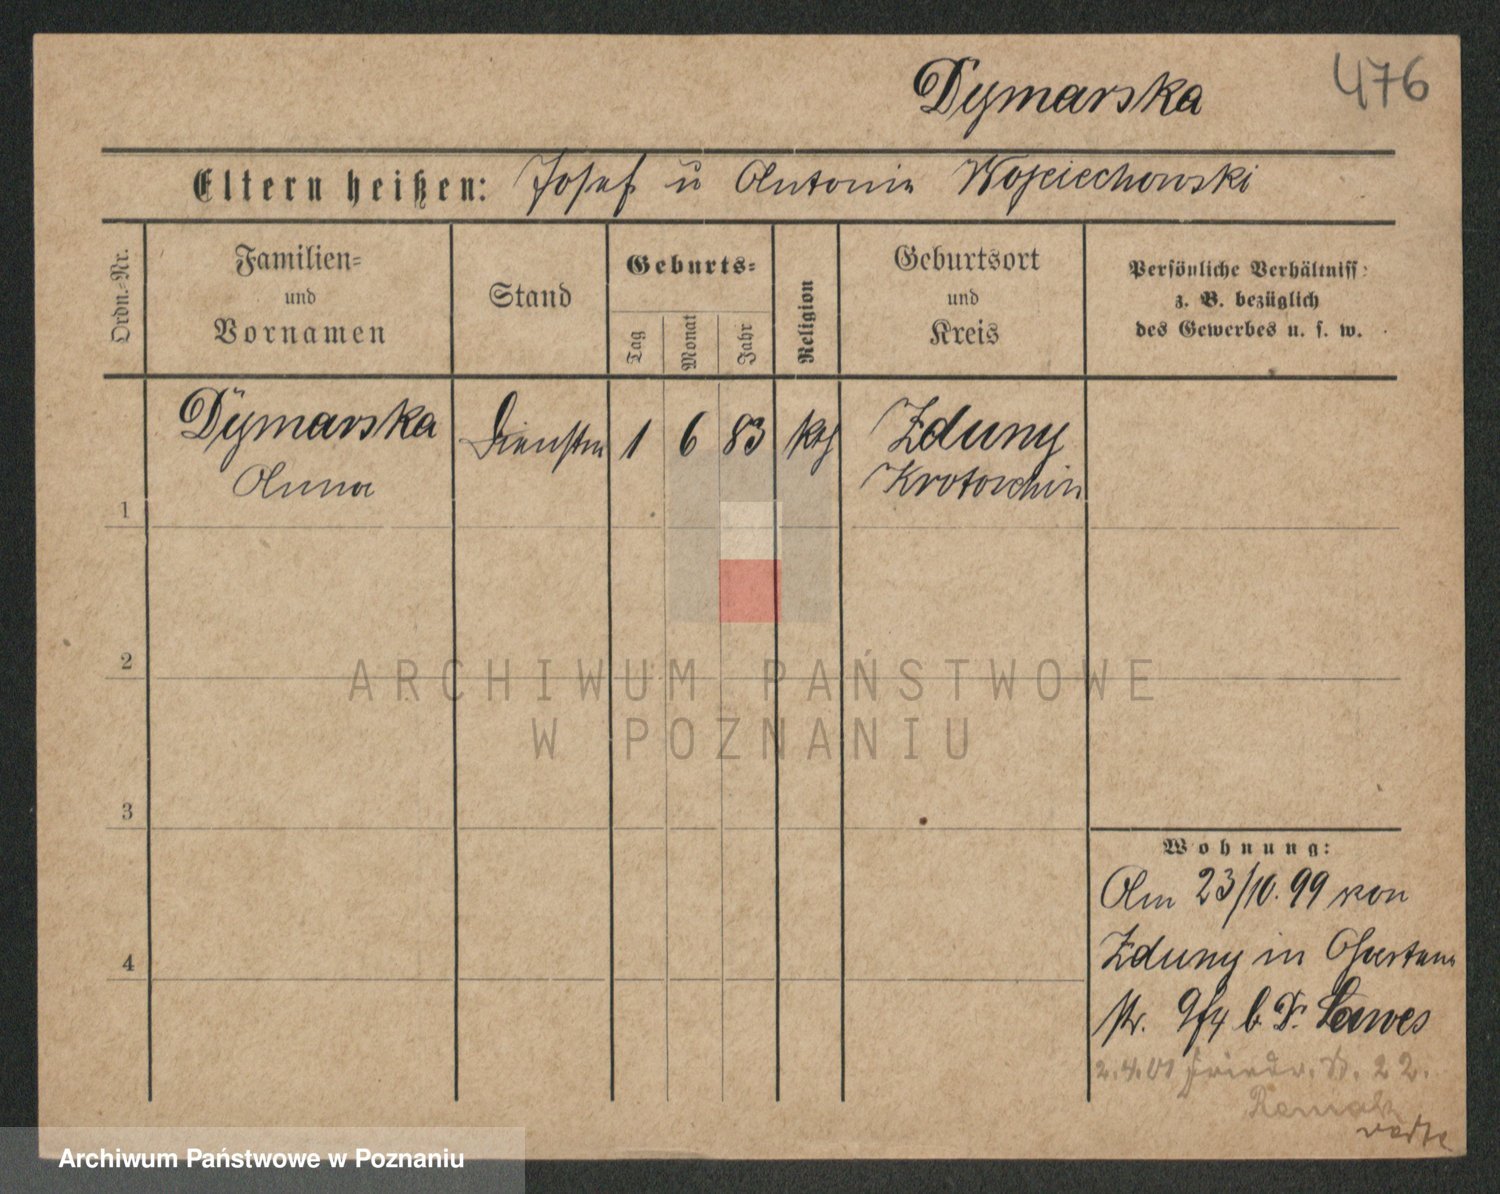 Dymarska
476
Eltern heißen: Josef u Antonie Wojciechowski
Ordn.-Nr.
Familien-
und
Vornamen
Stand
Geburts-
Tag
Monat
Jahr
Religion
Geburtsort
und
Kreis
Persönliche Verhältniss
z. B. bezüglich
des Gewerbes u. s. w.
1
Dymarska
Anna
1
6
83
kth
Zduny
Krotoschin
2
3
4
ARCHIWUM PAŃSTWOWE
W POZNANIU
Wohnung:
Am 23/10. 99 von
Zduny in
str. b. Dr.
2.4.01 Friedr. 22.
Archiwum Państwowe w Poznaniu